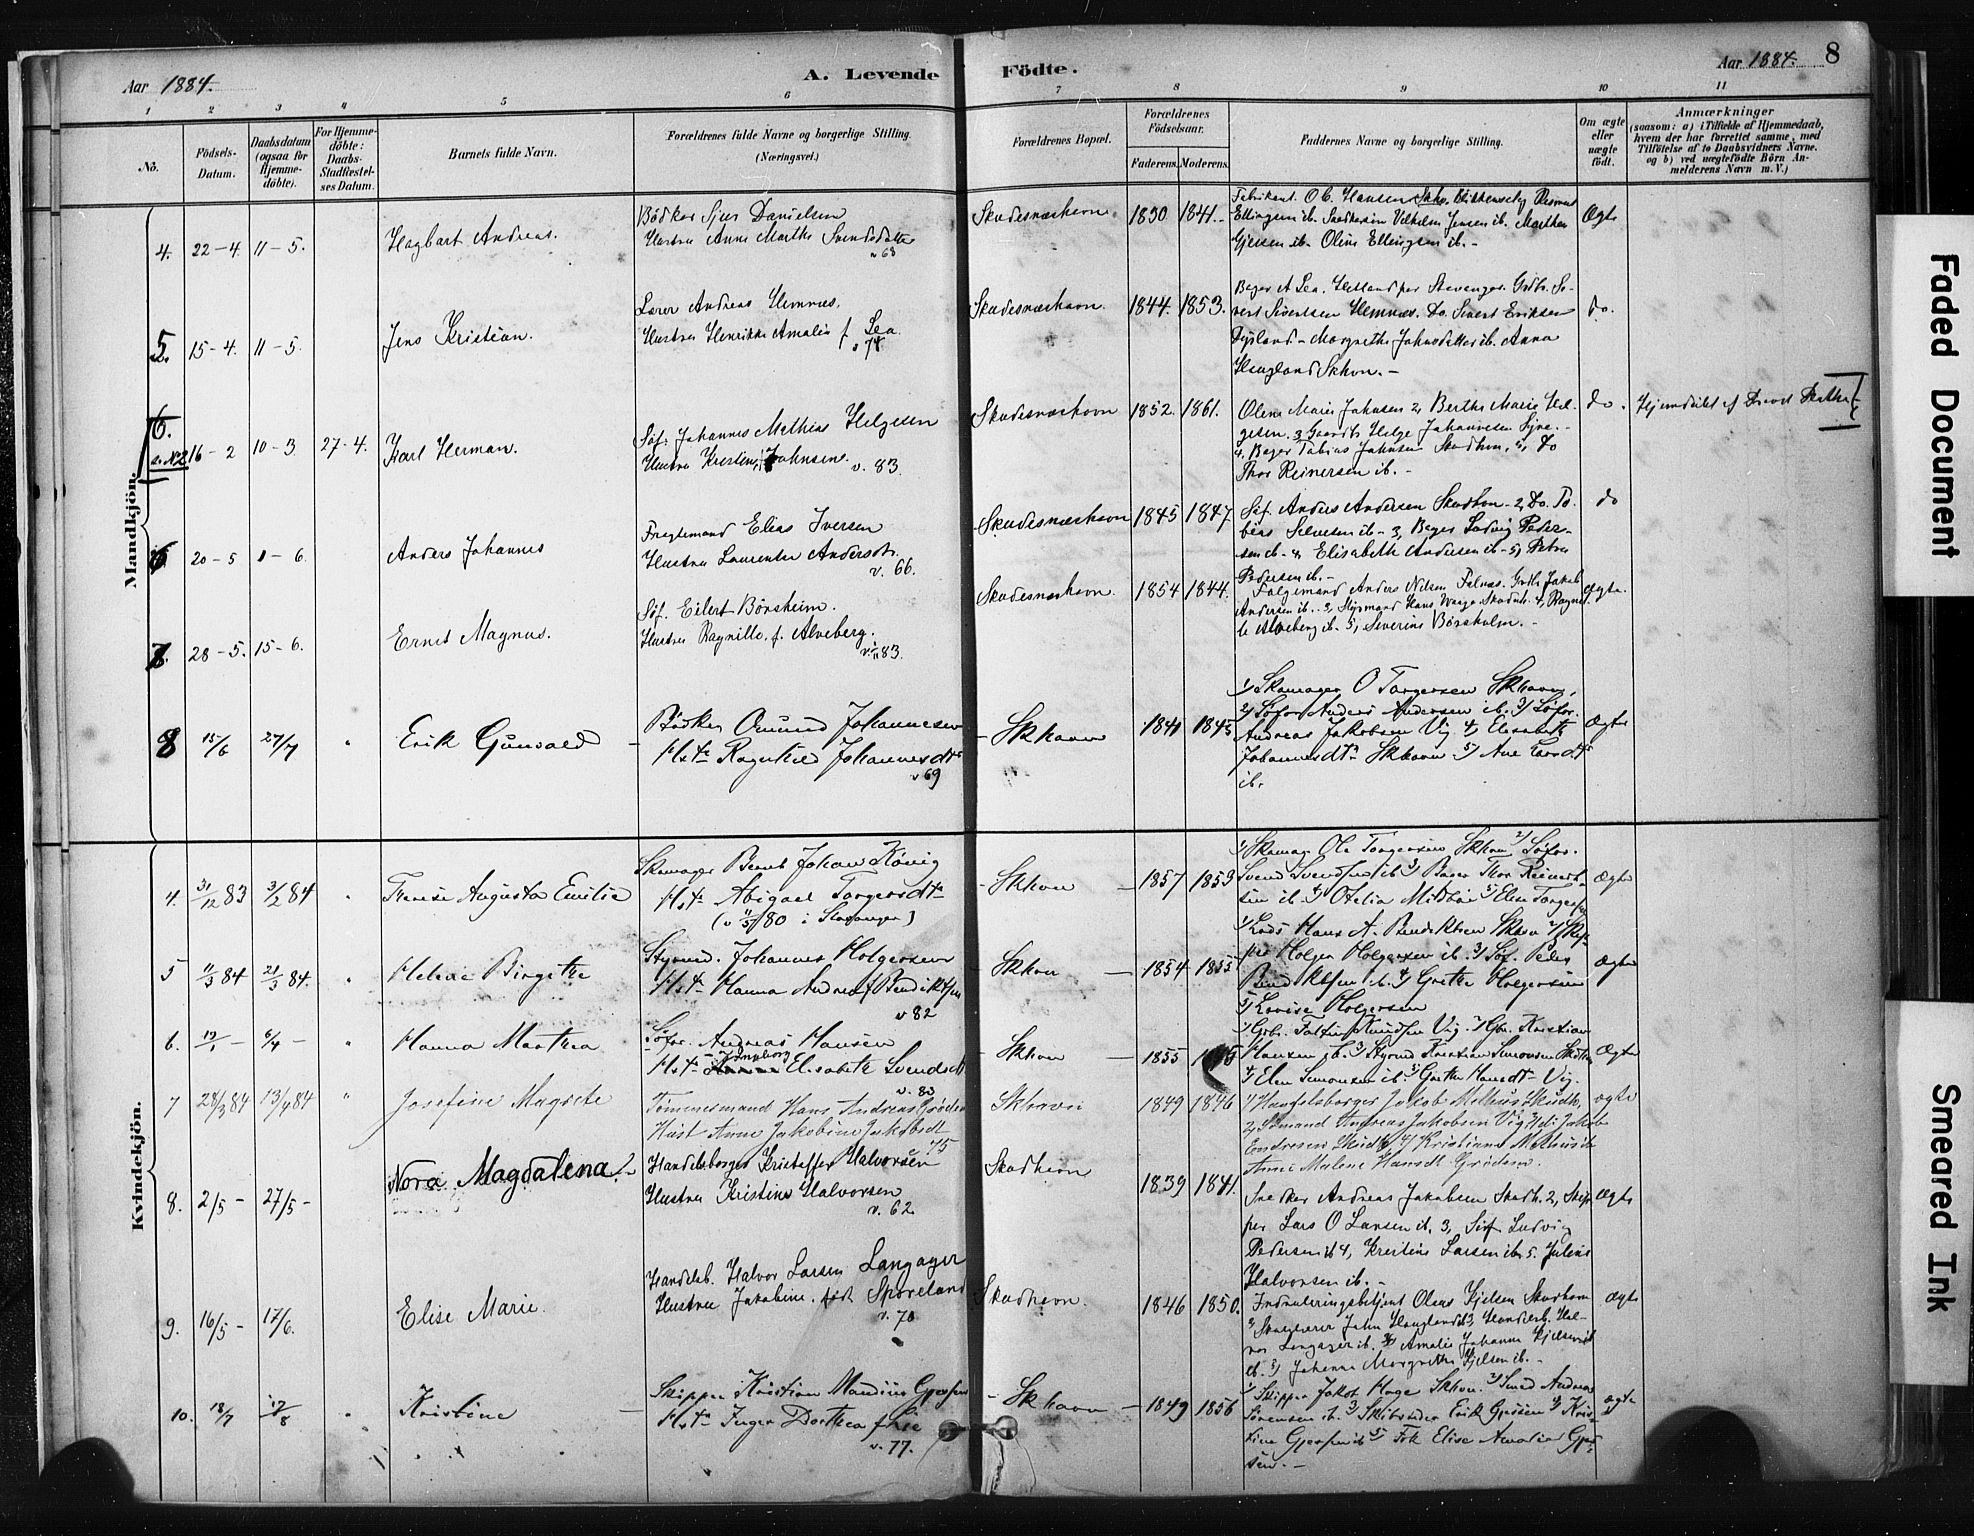 Aar 1884.
A. Levende Födte.
Aar 1884. 8
1 2 3 4 5 6 7 8 9 10 11
No.
Födsels-Datum.
Daabsdatum (ogsaa for Hjemme-döbte).
For Hjemme-döbte: Daabs-Stadfæstel-ses Datum.
Barnets fulde Navn.
Forældrenes fulde Navne og borgerlige Stilling.
(Næringsvei.)
Forældrenes Bopæl.
Forældrenes Födselsaar.
Faderens. Moderens.
Faddernes Navne og borgerlige Stilling.
Om ægte eller uægte födt.
Anmærkninger
(saasom: a) i Tilfælde af Hjemmedaab, hvem der har forrettet samme, med Tilföielse af to Daabsvidners Navne, og b) ved uægtefödte Börn An-melderens Navn m. V.)
Mandkjön.
4. 22-4. 11-5. Hagbart Andreas.
Bödker Sjur Danielsen
Hustru Anne Marthe Svendsdatter
v 63
Skudesnæshavn 1830 1841.
Fabrikant O C. Hansen Skhv.
Ellingsen ib. Vilhelm Jensen ib. Marthea
Gjersen ib. Oline Ellingsen ib.-
Ægte
5. 15-4. 11-5. Jens Kristian.
Lærer Andreas Hemnes.
Hustru Henrikke Amalia f. Lea.
v 74
Skudesnæshavn. 1844. 1853.
Sivertsen Hemnæs. Do. Sivert Eriksen
Margrethe Johnsdatter ib. Anna
Haugland Skhvn.-
do.
6. 16-2 10-3. 27-4. Karl Herman.
Søf. Johannes Mathias Helgesen
Hustru Kristine Johnsen. v. 83.
Skudesnæshavn 1852. 1861.
Oline Marie Johnsen 2, Berthe Marie Hel-
gesen. 3 Gaardb. Helge Johannesen Syre.-
4. Bager Tobias Johnsen Skudhvn. 5, Do
Thor Reinersen ib.-
do. Hjemdöbt af
20-5 1-6. Anders Johannes
Fragtemand Elias Iversen
Hustru Laurentse Andersdtr.
v. 66.
Skudesnæshavn 1845 1847.
Søf. Anders Andersen Skudhvn - 2, Do. To-
bias ib - 3, Bager Ludvig Peder-
sen ib - 4, Elisabeth Andersen ib - 5, Petra
Pedersen ib.-
do
7. 28-5. 15-6. Ernst Magnus.
Søf. Eilert Börsheim.
Hustru Ragnille, f. Alveberg.
83.
Skudesnæshavn. 1854 1844.
Anders Nilsen Falnæs. Grdb. Jakob
Andersen ib. 3, Styrmand Hans Waage Skudesh. 4, Ragnil-
de Alveberg ib. 5, Severine Börsholm.-
Ægte.
8 15/6 27/7 " Erik Gunvald
Bödker Omund Johannesen
Hstr. Ragnhild Johannesdtr
v 69
Skhavn 1841 1845
1) Skomager O Torgersen Skhavn,
2) Søfor Anders Andersen ib. 3) Søfor.
Andreas Jakobsen Vig 4) Elisabeth
Johannesdtr Skhavn 5) Ane Larsdtr
ib.
Ægte
Kvindekjön.
4. 31/12 83 3/2 84 " Therese Augusta Emilie
Skomager Bernt Johan König
Hstr Abigael Torgersdtr
(v 11/5 80 i Stavanger)
Skhvn 1857 1853
1) Skomag. Ole Torgersen Skhvn 2) Søfor.
Svend Svendsen ib 3) Bager Thor Reinert-
sen ib. 4) Otelia 5) Elen Torgersen
Ægte
5 11/3 84 21/3 84. " Helene Birgitte
Styrmd. Johannes Holgersen
Hstr Hanna Andrea f Bendiktsen
v 82
Skhvn 1854 1855
1) Lods Hans A. Bendiktsen Skhvn 2) Skip-
per Holger Holgersen ib. 3) Søf. Peder
Bendiktsen ib. 4) Grethe Holgersen
5) Lovise Holgersen
Ægte
6. 19/1 - 6/4 - " Hanna Marthea
Søfor. Andreas Hansen
Hstr. Elisabeth Svendsdt
v. 82
Skhvn 1855
1) Grbr. Knudsen Vig. 2) Gbr. Kristian
Hansen ib. 3) Styrmd Kristian Simonsen Skhvn
4) Elen Simonsen ib. 5) Grethe Hansdtr Vig.
Ægte
7 28/3 84 13/4 84 " Josefine Magrete
Tömmermand Hans Andreas Gröden
Hust Anne Jakobine Jakobsdt
75
Skhavn 1849 1846
1) Handelsborger Jakob Skudh.
2) Sömand Andreas Jakobsen Vig
Endresen Skudh. 4) Kristiane
Anne Malene Hansdt Gröden.
ægte
8. 2/5 - 27/5 - Nora Magdalena.
Handelsborger Kristoffer Halvorsen
Hustru Kristine Halvorsen
v. 62
Skudhavn 1839 1841.
Snedker Andreas Jakobsen Skudh. 2, Skip-
per Lars O Larsen ib. 3, Søf. Ludvig
Pedersen ib 4, Kristine Larsen ib. 5. Julius
Halvorsen ib.-
Ægte
9. 16/5 - 17/6. Elise Marie.
Handelsb. Halvor Larsen Langager
Hustru Jakobine. födt Sporeland
v. 70
Skudhavn. 1846 1850.
Olens Kjelsen Skudhavn
John Haugland ib 3, Handelsb. Hal-
vor Langager ib. 4, Amalie Johanna
5, Johanna Margrethe Kjelsen ib.-
ægte
10. 18/7 17/8 " Kristine
Skipper Kristian Mandius Gjersen
Hstr Inger Dorthea f
v. 77.
Skhavn 1849 1856
1) Skipper Jakob Hage Skhvn. 2) Smed Andreas
Sörensen ib. 3) Skibsreder Erik Gjersen 4) Kris-
tine Gjersen ib 5) Frk Elise Amalie Gjer-
sen.-
ægte
Faded Document
Smeared Ink